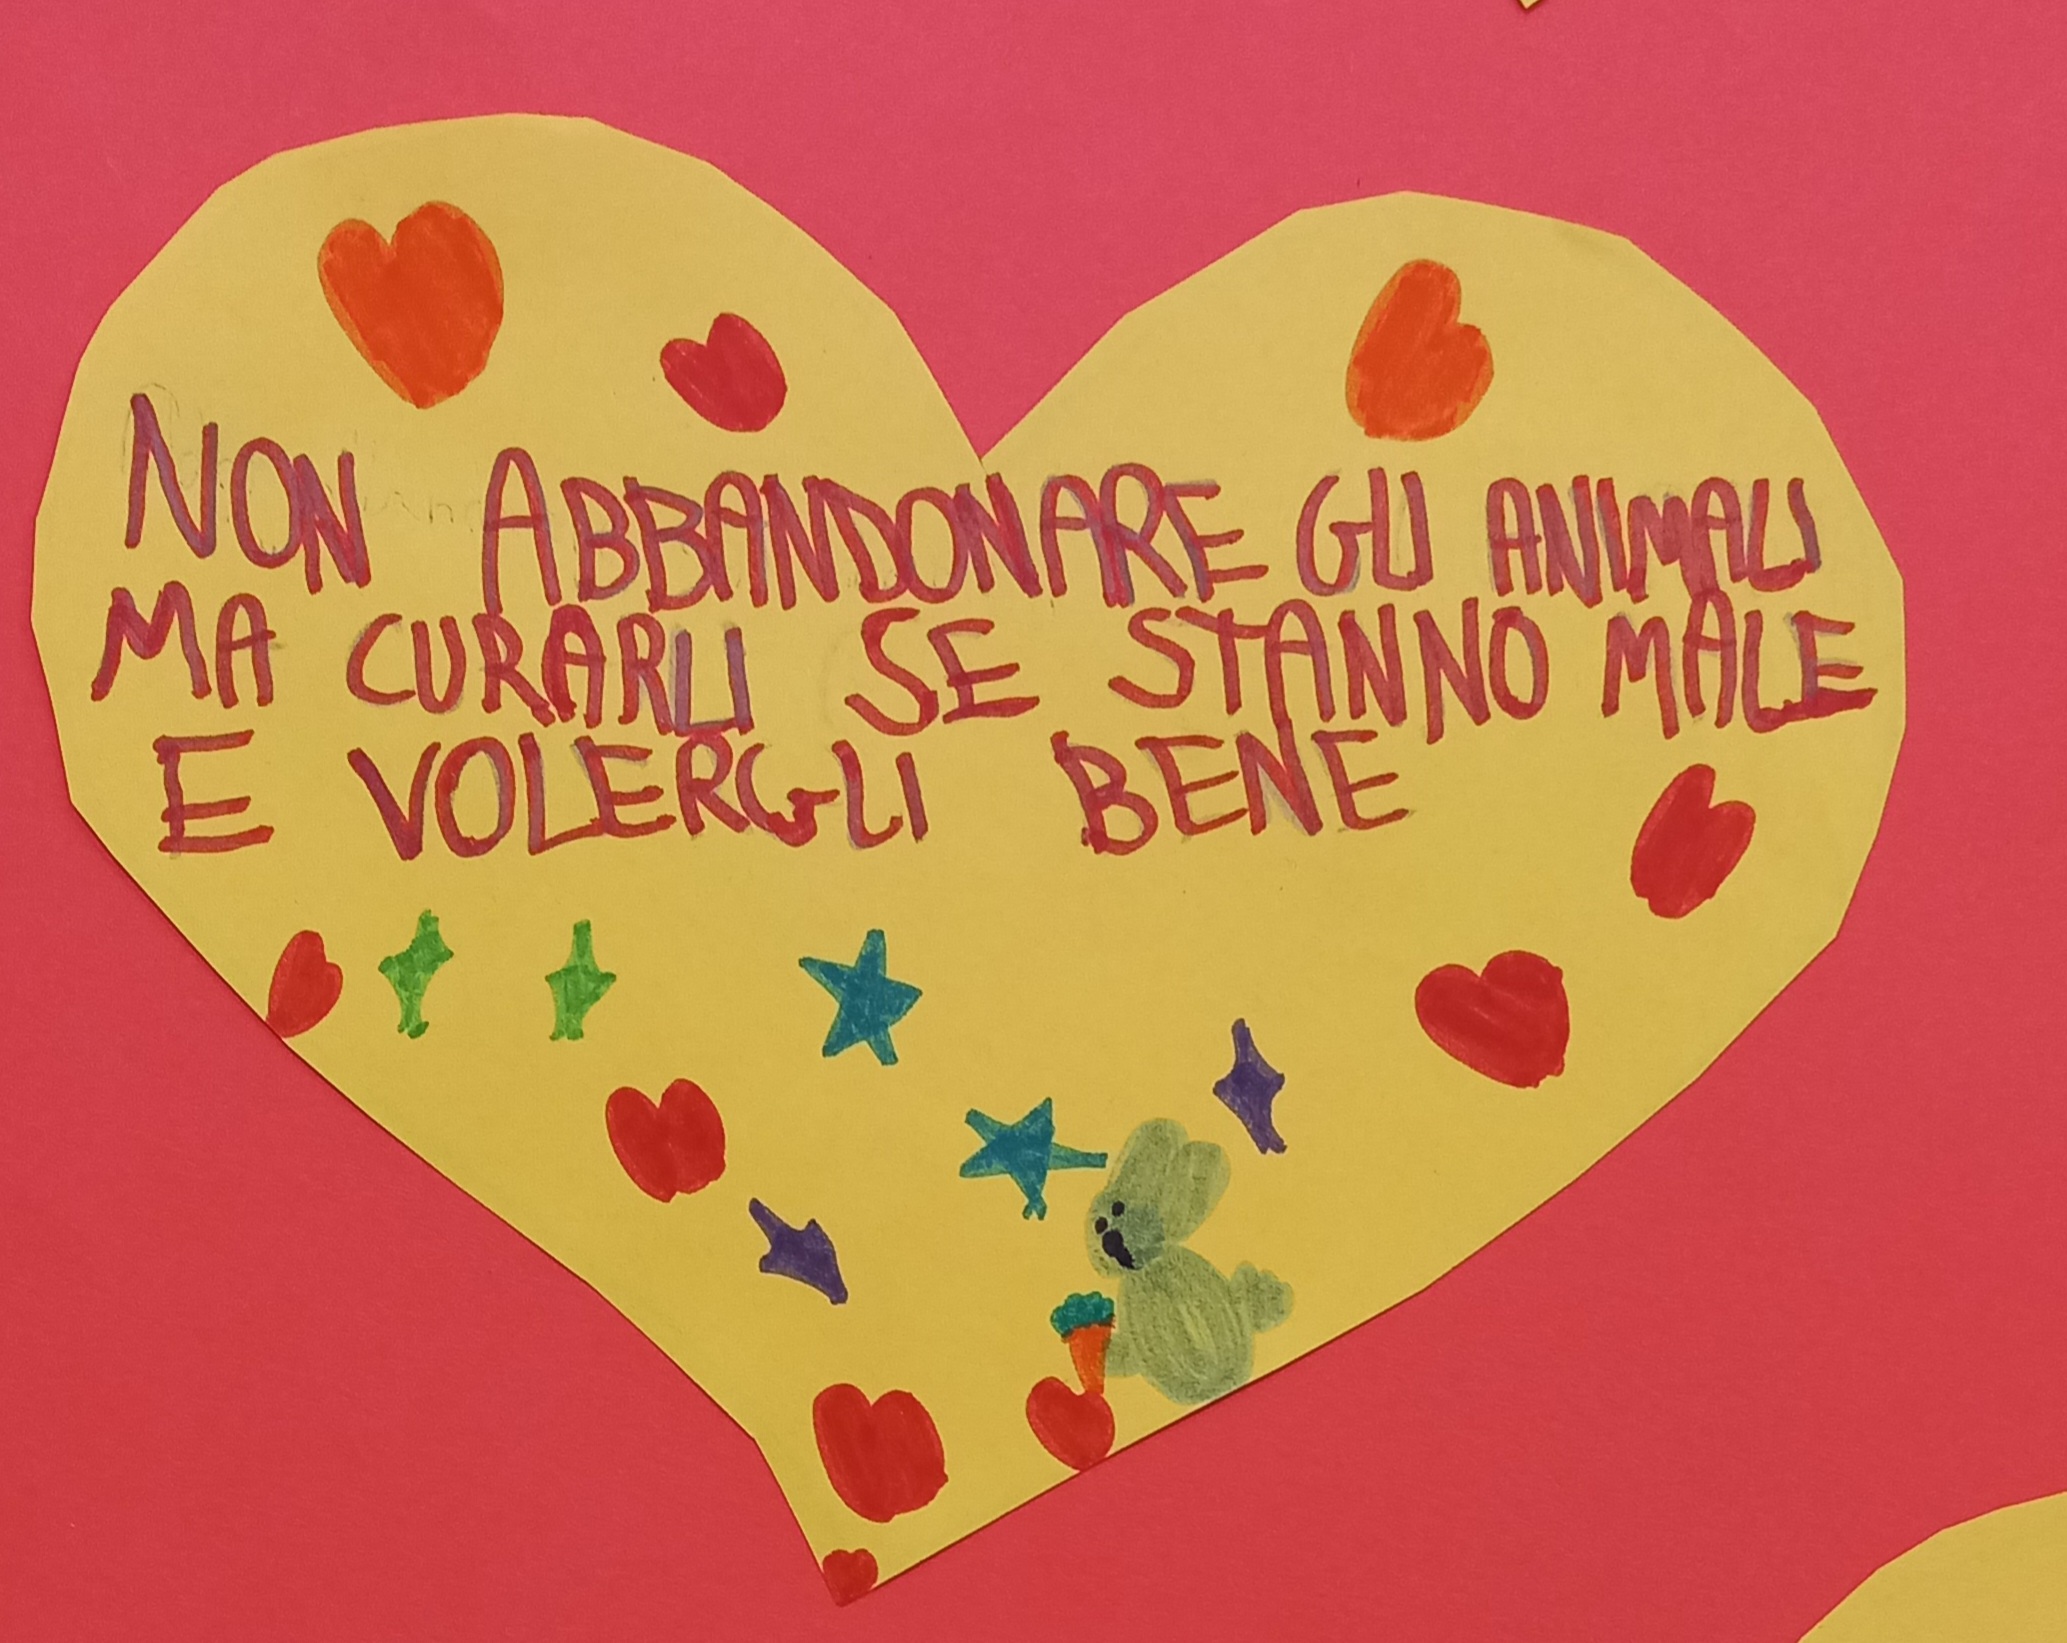 NON ABBANDONARE GLI ANIMALI
MA CURARLI SE STANNO MALE
E VOLERGLI BENE